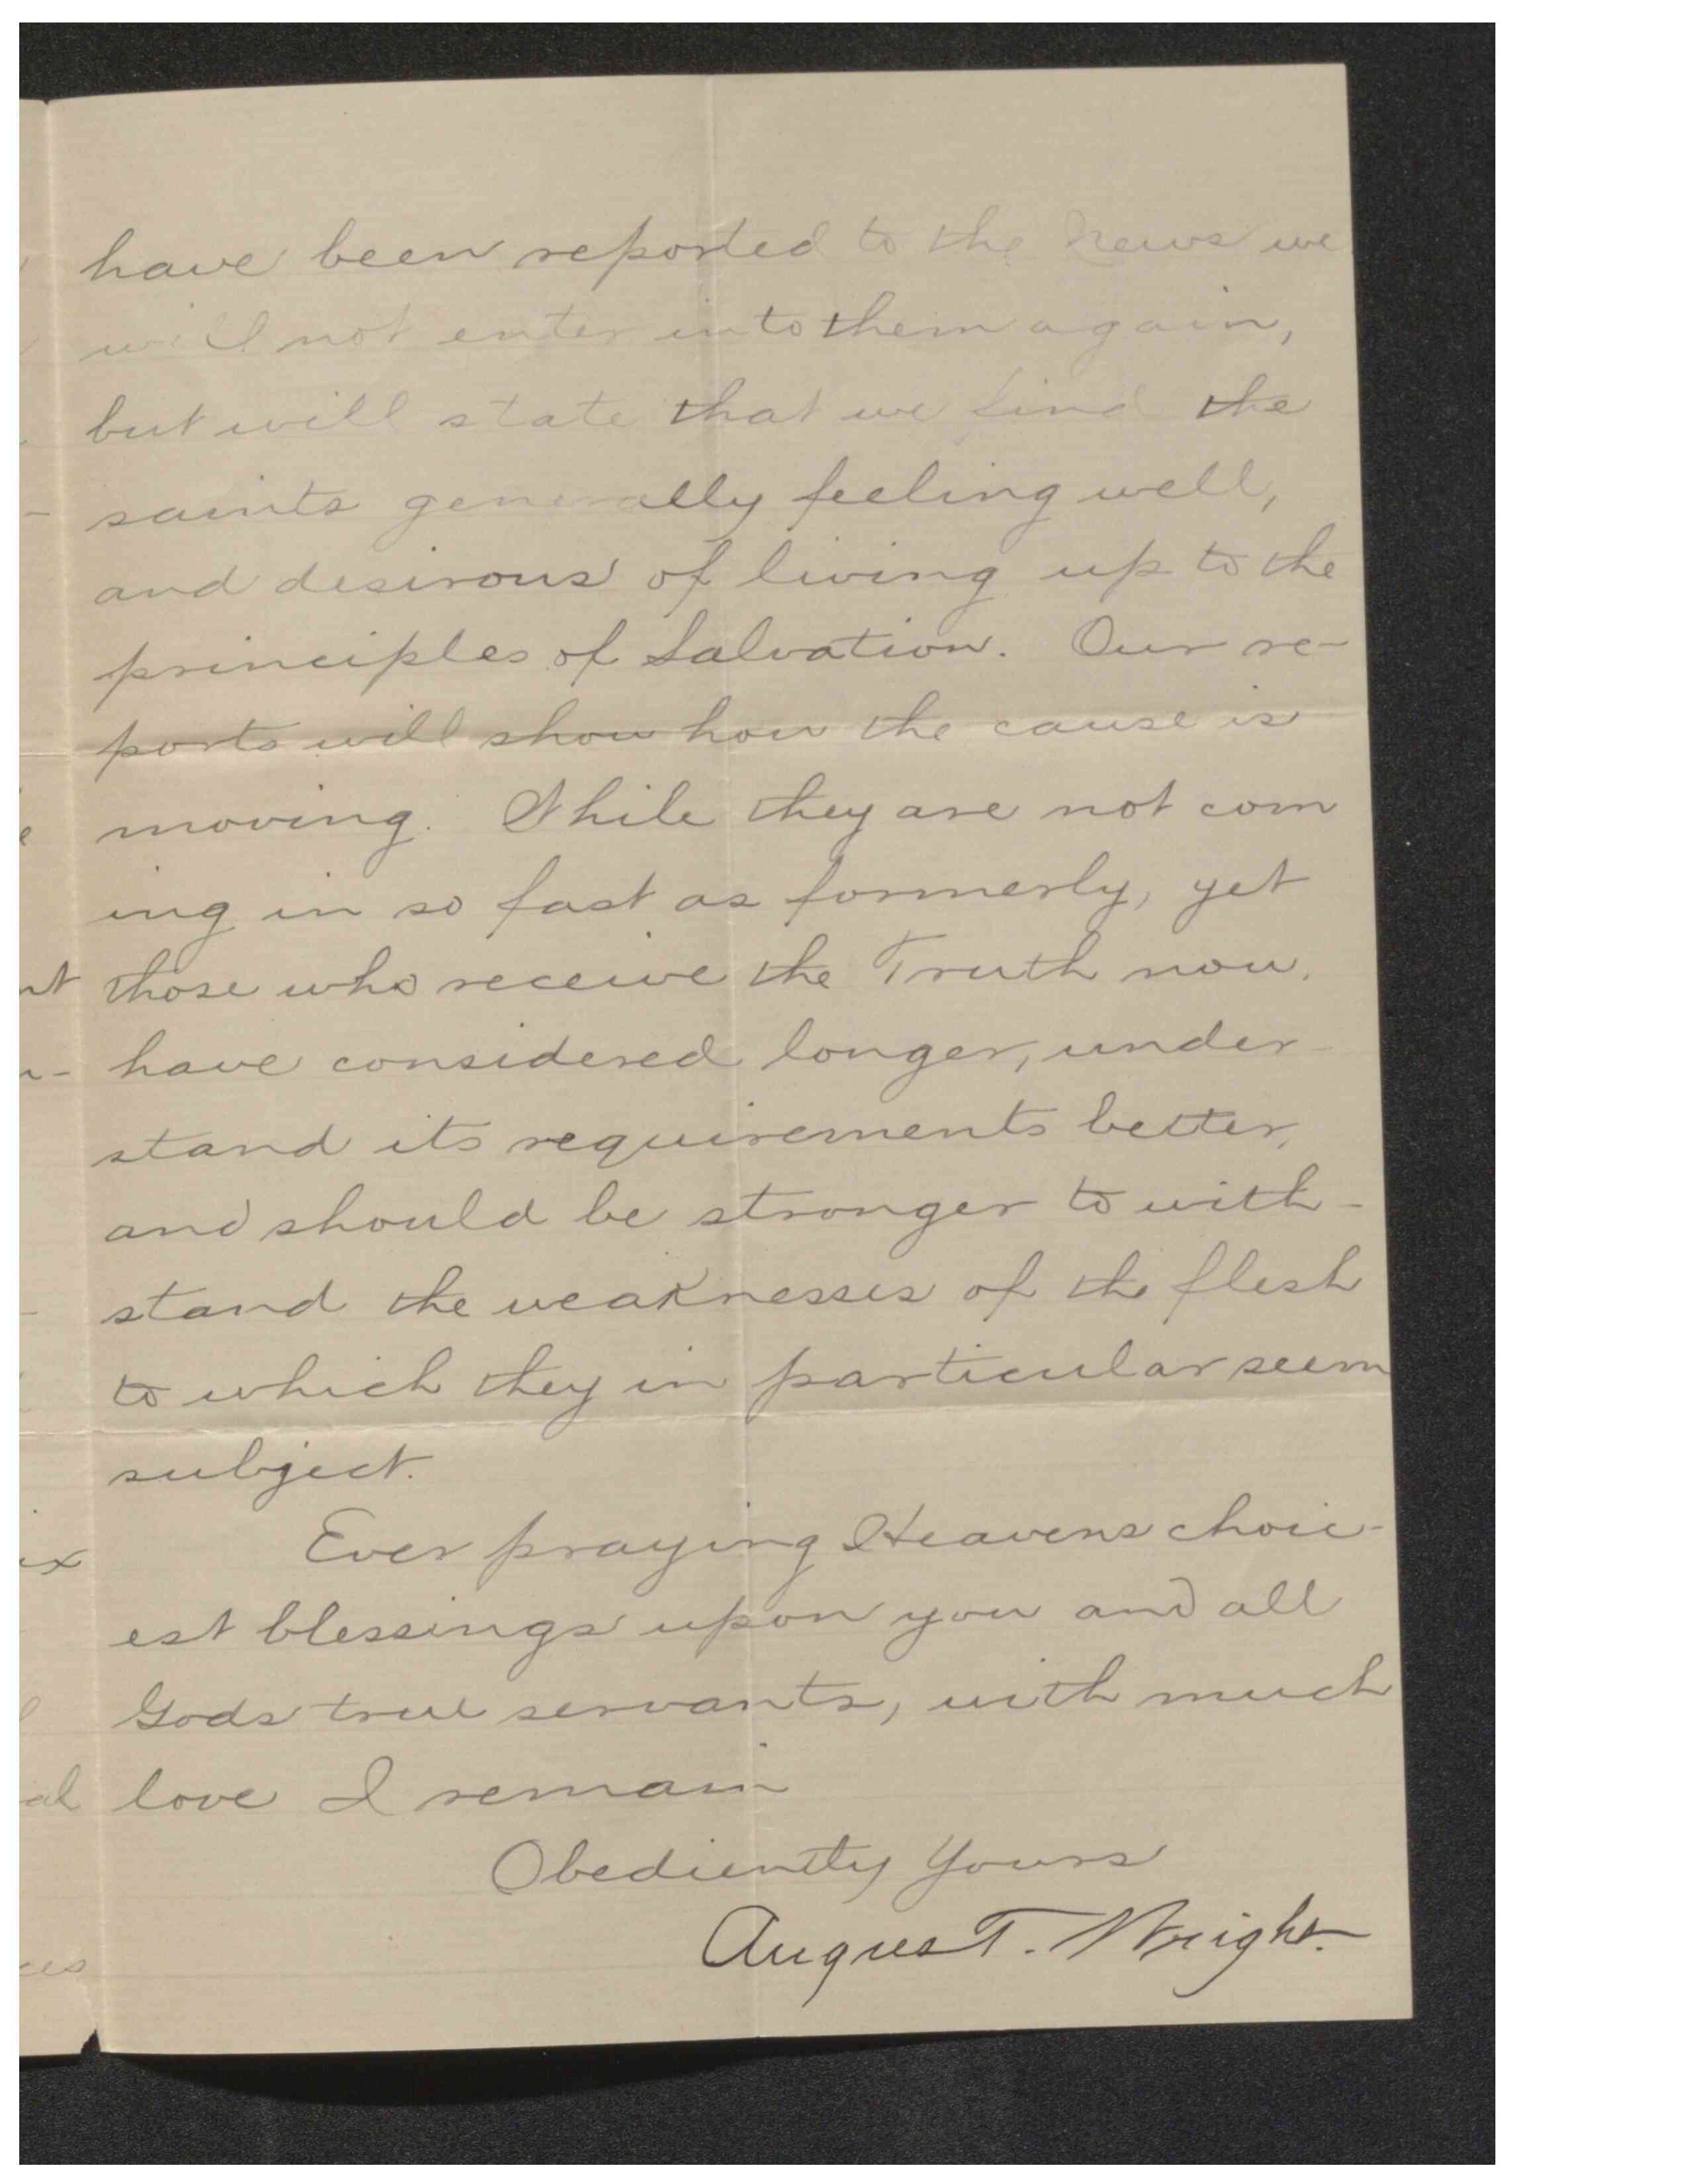 have been reported to the News we
will not enter into them again,
but will state that we find the
saints generally feeling well,
and desirous of living up to the
principles of Salvation. Our re-
ports will show how the cause is
moving. While they are not com
ing in so fast as formerly, yet
those who receive the Truth now,
have considered longer, under-
stand its requirements better,
and should be stronger to with-
stand the weaknesses of the flesh
to which they in particular seem
subject.
Ever praying Heavens choic-
est blessings upon you and all
Gods true servants, with much
love I remain
Obediently Yours
Angus T. Wright.